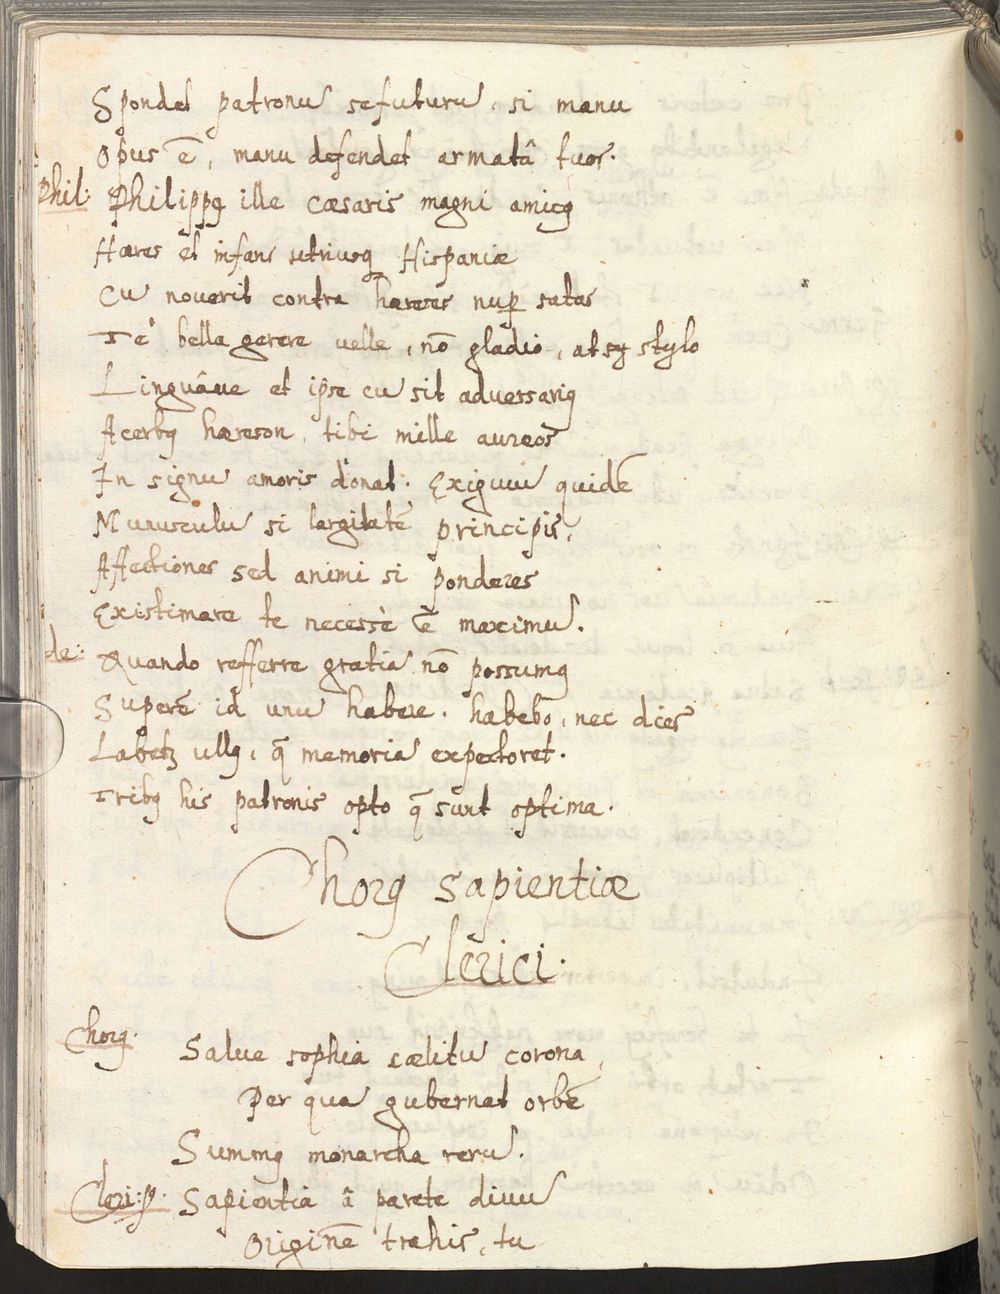 Spondet patronu sefuturu, si manu
Opus ē, manu defendet armatâ tuos.
Phil: Philippꝯ ille cæsaris magni amicꝯ
Hæres et infans utriusqꝫ Hispaniæ
Cu noverit contra hæreses nuꝑ satas
Te bella gerere velle, nō gladio, atqꝫ stylo
Linguâue et ipse cu sit adversariꝯ
Acerbꝯ hæreson, tibi mille aureos
In signu amoris donat. Exiguu quidē
Munusculu si largitatē principis,
Affectiones sed animi si ponderes
Existimare te necessè ē maximu.
de: Quando refferre gratia nō possumꝯ
Superē id unu habere. habebō, nec dies
Labetꝫ ullꝯ, q̄ memoria expectoret.
Tribꝯ his patronis opto q̄ sunt optima.
Chorꝯ sapientiæ
Clerici.
Chorꝯ. Salue sophia cælitu corona,
Per qua gubernat orbē
Summꝯ monarcha reru.
Cleri: p. Sapientia â parēte diuu
Originē trahis, tu